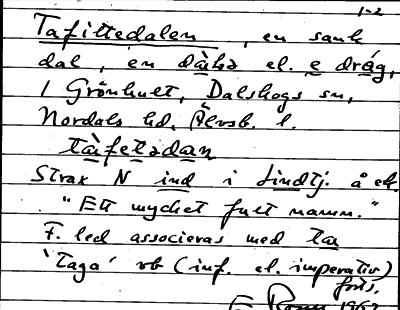 1-2
Tafittedalen, en sank
dal, en dàkə el. e dråg,
i Grönhult, Dalskogs sn,
Nordals hd, Älvsb. l.
tàfetədan
Strax N ind i Lindtj. å ek.
"Ett mycket fult namn."
F. led associeras med ta
'taga' vb (inf. el. imperativ)
forts.
1962